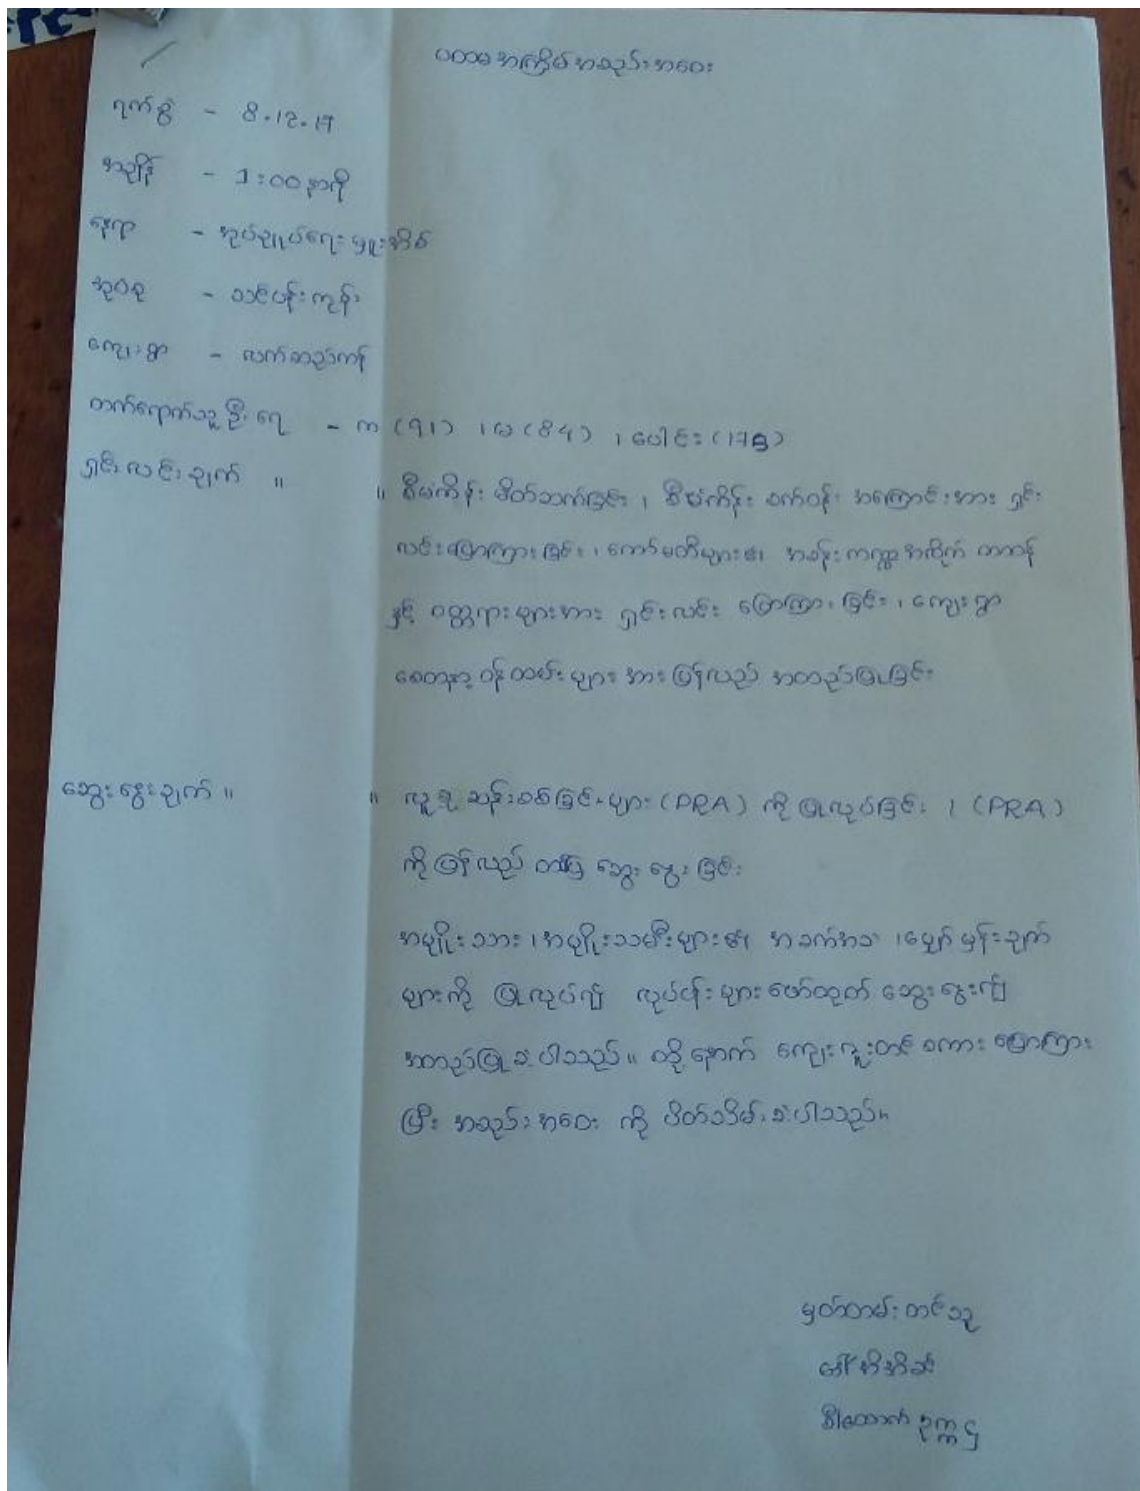 ပထမအကြိမ်အစည်းအဝေး
ရက်စွဲ - 8.12.17
အချိန် - 1:00 နာရီ
နေရာ - အုပ်ချုပ်ရေးမှူးအိမ်
အုပ်စု - သင်ပန်းကုန်း
ကျေးရွာ - လက်ဆည်ကန်
တက်ရောက်သူဦးရေ - က (91) ၊ မ (84) ၊ ပေါင်း (175)
ရှင်းလင်းချက် ။ ။ စီမံကိန်း မိတ်ဆက်ခြင်း ၊ စီမံကိန်း စက်ဝန်း အကြောင်းအား ရှင်း
လင်းပြောကြားခြင်း ၊ ကော်မတီများ၏ အခန်းကဏ္ဍအလိုက် တာဝန်
နှင့် ဝတ္တရားများအား ရှင်းလင်း ပြောကြားခြင်း ၊ ကျေးရွာ
စေတနာ့ ဝန်ထမ်းများ အား ပြန်လည် အတည်ပြုခြင်း
ဆွေးနွေးချက် ။ ။ လူမှုဆန်းစစ်ခြင်းများ (PRA) ကို ပြုလုပ်ခြင်း ၊ (PRA)
ကို ပြန်လည် ဆွေးနွေးခြင်း
အမျိုးသား ၊ အမျိုးသမီးများ၏ အခက်အခဲ ၊ မျှော်မှန်းချက်
များကို ပြုလုပ်၍ လုပ်ငန်းများဖော်ထုတ် ဆွေးနွေး၍
အတည်ပြုခဲ့ပါသည်။ ထို့နောက် ကျေးဇူးတင်စကား ပြောကြား
ပြီး အစည်းအဝေး ကို ပိတ်သိမ်းခဲ့ပါသည်။
မှတ်တမ်းတင်သူ
ဒေါ်အိအိခင်
စီ/ထောက် ဥက္ကဌ